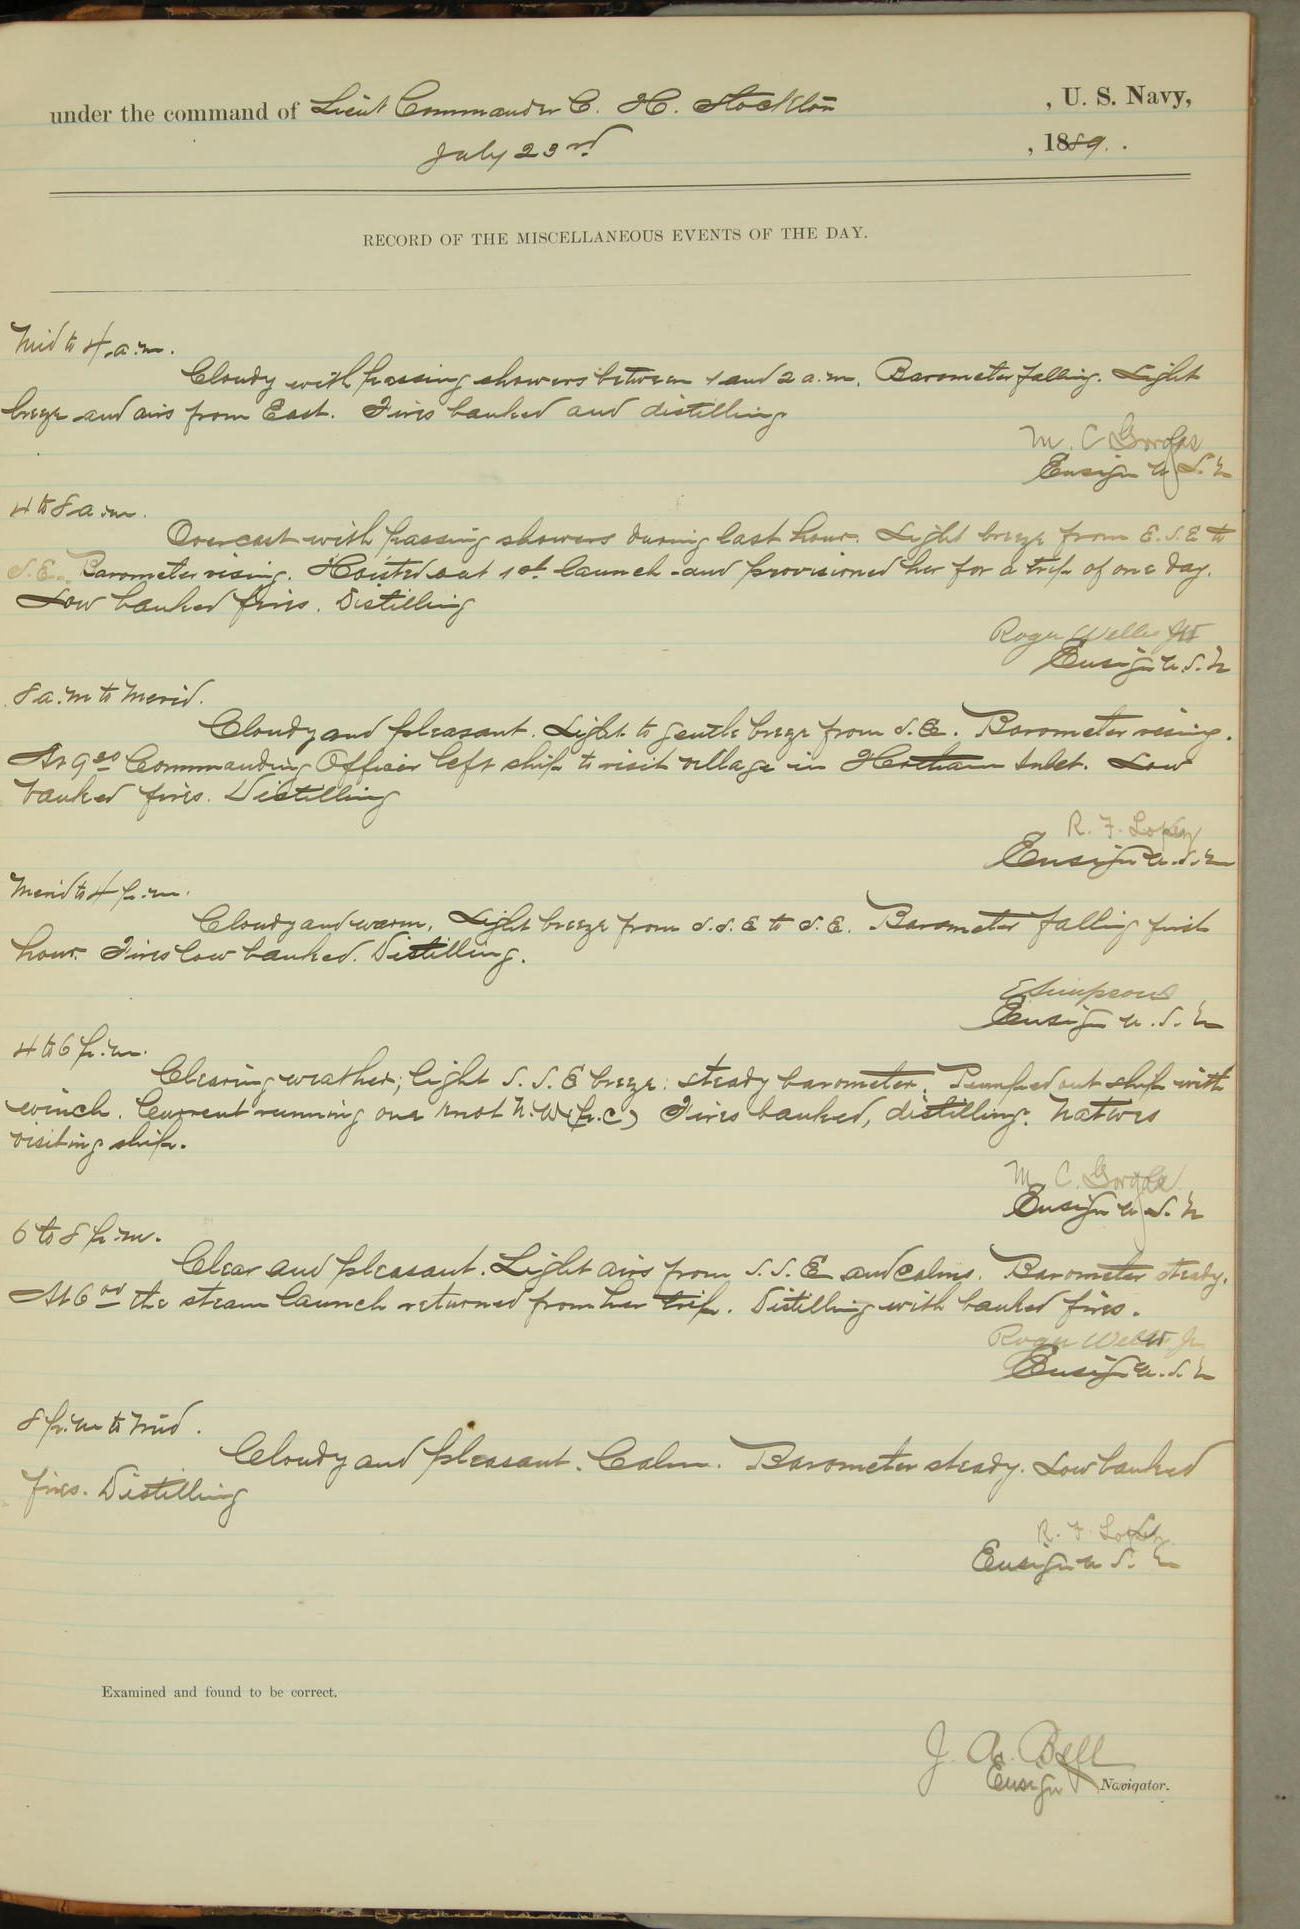 under the command of Lieut Commander C. H. Stockton, U. S. Navy,
July 23rd, 1889.
RECORD OF THE MISCELLANEOUS EVENTS OF THE DAY.
Mid to 4 a.m.
Cloudy with passing showers between 1 and 2 a.m. Barometer falling. Light
breeze and airs from East. Fires banked and distilling
M. C. Gorgas
Ensign U.S.N
4 to 8 a.m.
Overcast with passing showers during last hour. Light breeze from E.S.E to
S.E. Barometer rising. Hoisted out 1st launch and provisioned her for a trip of one day.
Low banked fires. Distilling
Roger Welles Jr
Ensign U.S.N
8 a.m to Merid.
Cloudy and pleasant. Light to gentle breeze from S.E. Barometer rising.
At 9 Commanding Officer left ship to visit village in Hotham Inlet. Low
banked fires. Distilling
R. F. Lopez
Ensign U.S.N
Merid to 4 p.m.
Cloudy and warm. Light breeze from S.S.E to S.E. Barometer falling first
hour. Fires low banked. Distilling.
E Simpson
Ensign U.S.N
4 to 6 p.m.
Clearing weather; light S.S.E breeze; steady barometer. Pumped out ship with
winch. Current running one knot N.W (p.c) Fires banked, distilling. Natives
visiting ship.
M. C. Gorgas
Ensign U.S.N
6 to 8 p.m.
Clear and pleasant. Light airs from S.S.E and calms. Barometer steady.
At 6 the steam launch returned from her trip. Distilling with banked fires.
Roger Welles Jr
Ensign U.S.N
8 p.m to Mid.
Cloudy and pleasant. Calm. Barometer steady. Low banked
fires. Distilling
R. F. Lopez
Ensign U.S.N
Examined and found to be correct.
J. A. Bell
Ensign Navigator.